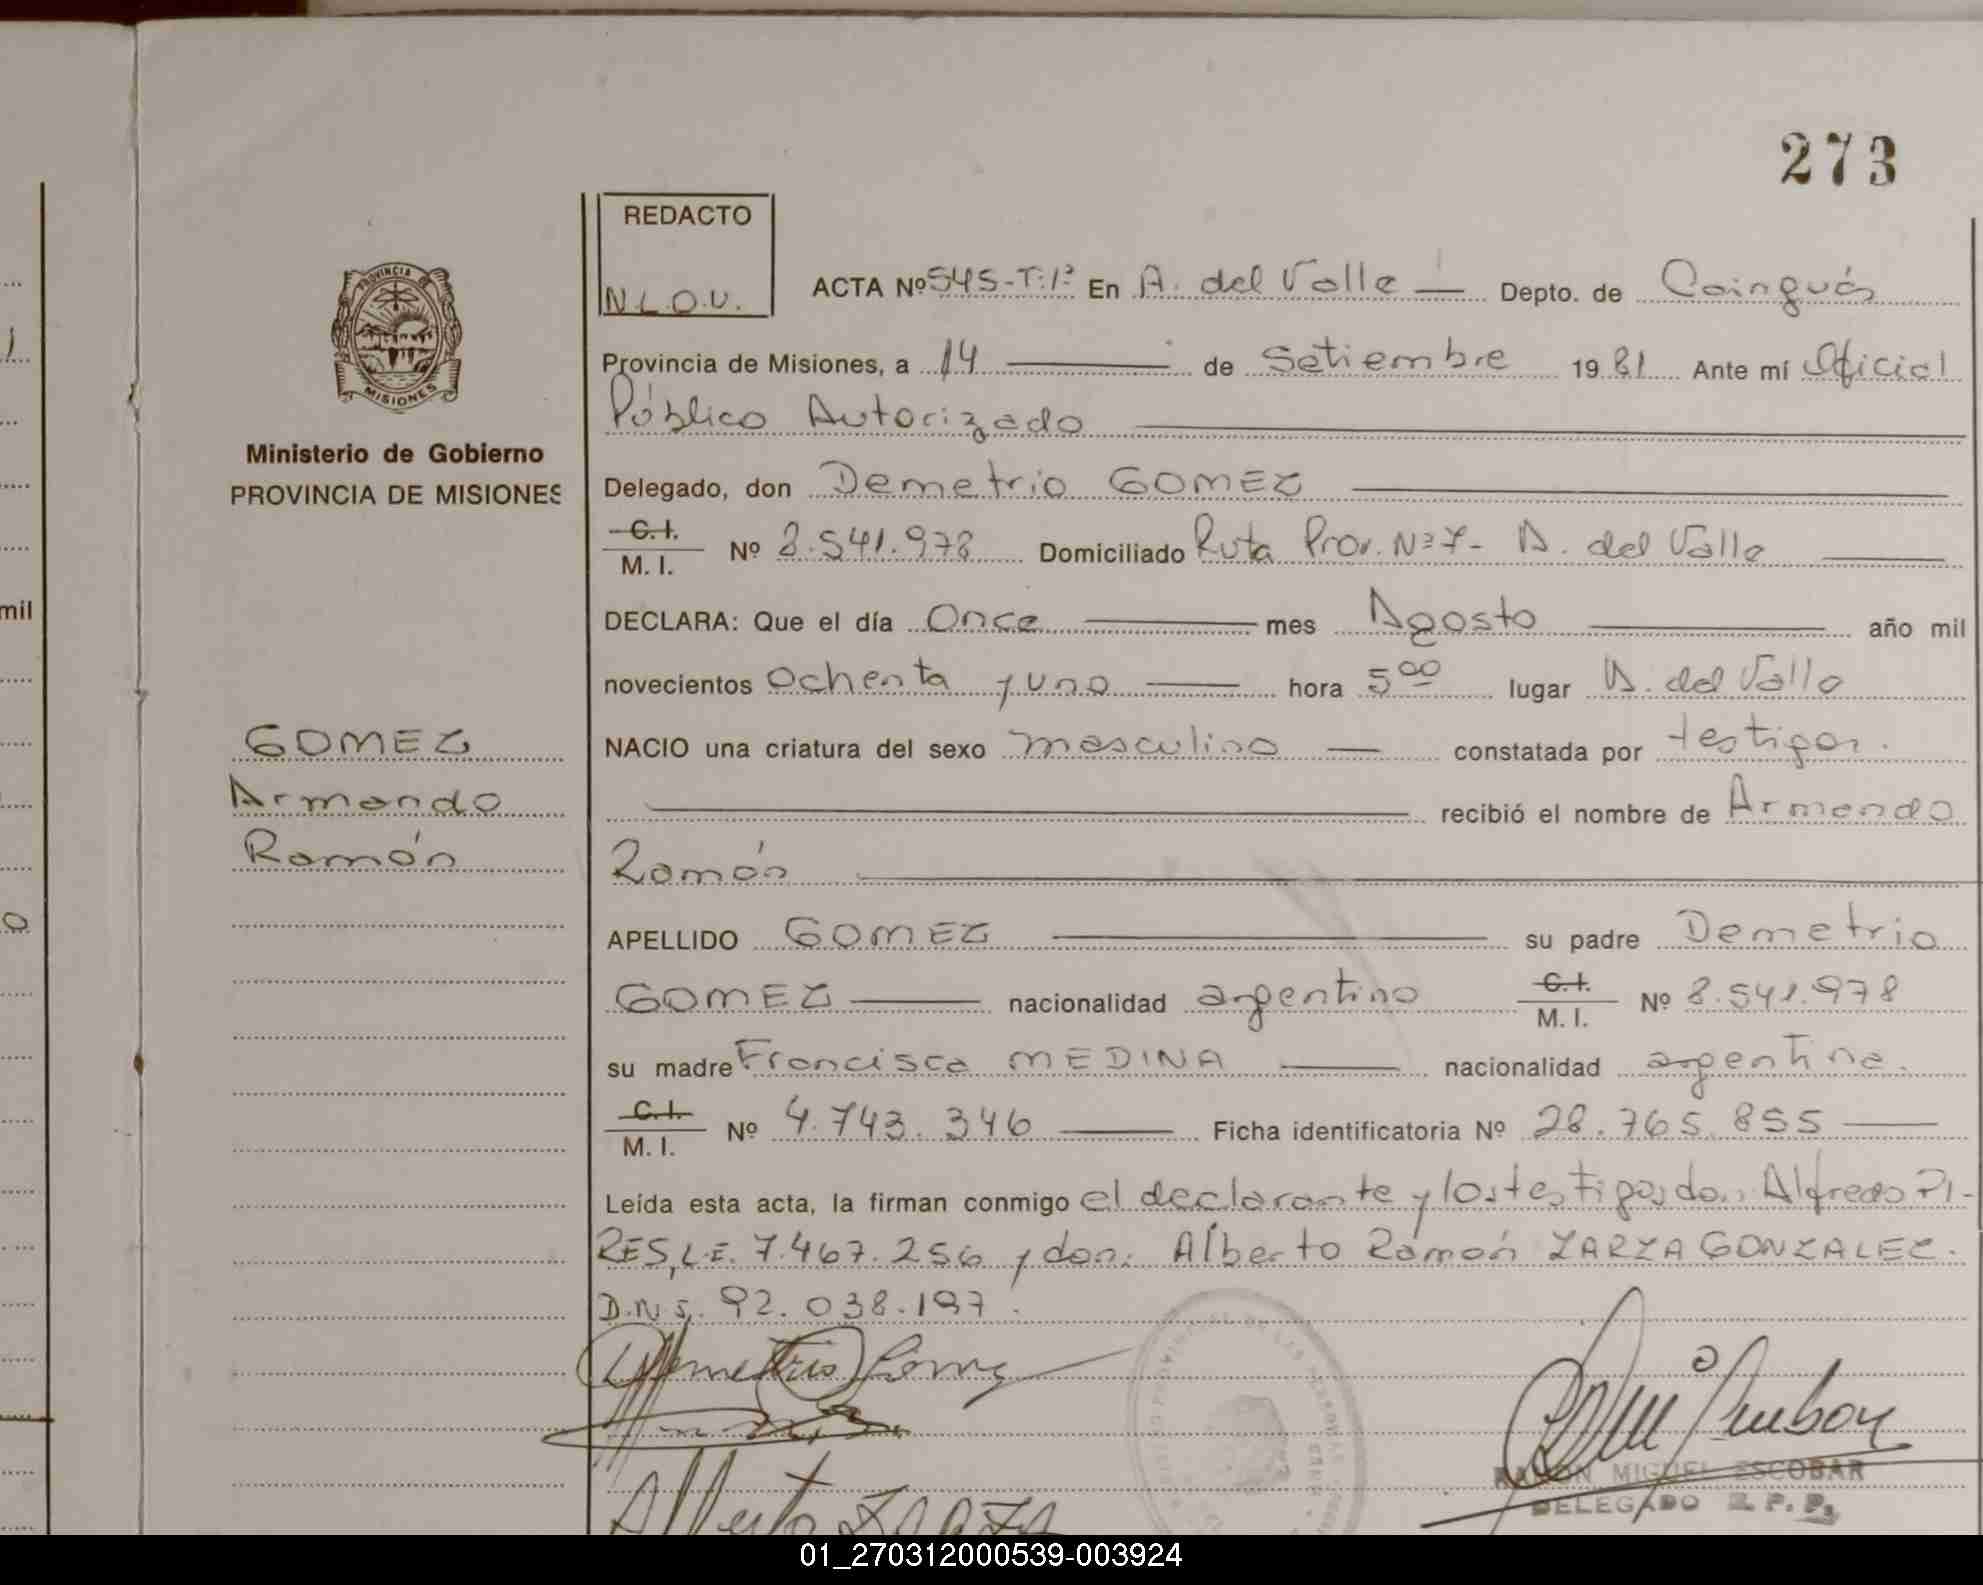 273
REDACTO
N.L.O.V.
PROVINCIA
MISIONES
Ministerio de Gobierno
PROVINCIA DE MISIONES
GOMEZ
Armando
Ramón
ACTA Nº 545-T:1º En A. del Valle Depto. de Cainguás
Provincia de Misiones, a 14 de Setiembre 1981 Ante mí Oficial
Público Autorizado
Delegado, don Demetrio GOMEZ
C.I.
M. I. Nº 8.541.978 Domiciliado Ruta Prov. Nº 7- A. del Valle
DECLARA: Que el día Once mes Agosto año mil
novecientos Ochenta y uno hora 5⁰⁰ lugar A. del Valle
NACIO una criatura del sexo masculino constatada por testigos.
recibió el nombre de Armando
Ramón
APELLIDO GOMEZ su padre Demetrio
GOMEZ nacionalidad argentino C.I. M. I. Nº 8.541.978
su madre Francisca MEDINA nacionalidad argentina.
C.I.
M. I. Nº 4.743.346 Ficha identificatoria Nº 28.765.855
Leída esta acta, la firman conmigo el declarante y los testigos don: Alfredo PI-
RES, L.E. 7.467.256 y don: Alberto Ramón ZARZA GONZALEZ.
D.N.I. 92.038.197.
Demetrio Gomez
Alberto ZARZA
RAMON MIGUEL ESCOBAR
DELEGADO R. P. P.
mil
01_270312000539-003924